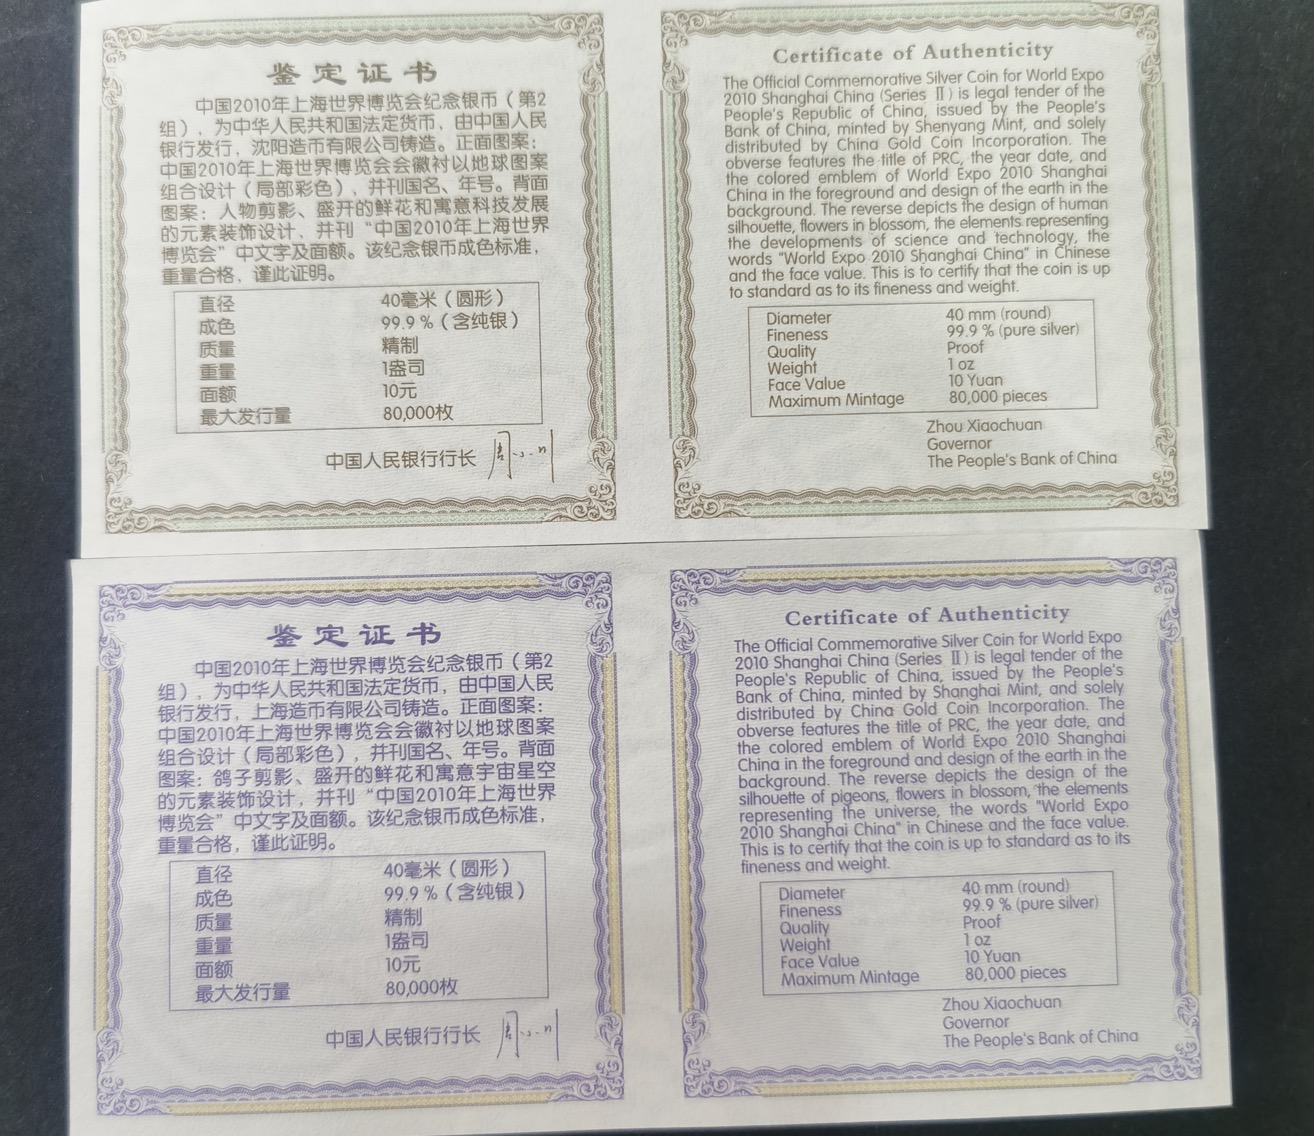 鉴定证书
中国2010年上海世界博览会纪念银币（第2
组），为中华人民共和国法定货币，由中国人民
银行发行，沈阳造币有限公司铸造。正面图案：
中国2010年上海世界博览会会徽衬以地球图案
组合设计（局部彩色），并刊国名、年号。背面
图案：人物剪影、盛开的鲜花和寓意科技发展
的元素装饰设计，并刊“中国2010年上海世界
博览会”中文字及面额。该纪念银币成色标准，
重量合格，谨此证明。
直径 40毫米（圆形）
成色 99.9％（含纯银）
质量 精制
重量 1盎司
面额 10元
最大发行量 80,000枚
中国人民银行行长 周小川
Certificate of Authenticity
The Official Commemorative Silver Coin for World Expo
2010 Shanghai China (Series Ⅱ) is legal tender of the
People's Republic of China, issued by the People's
Bank of China, minted by Shenyang Mint, and solely
distributed by China Gold Coin Incorporation. The
obverse features the title of PRC, the year date, and
the colored emblem of World Expo 2010 Shanghai
China in the foreground and design of the earth in the
background. The reverse depicts the design of human
silhouette, flowers in blossom, the elements representing
the developments of science and technology, the
words "World Expo 2010 Shanghai China" in Chinese
and the face value. This is to certify that the coin is up
to standard as to its fineness and weight.
Diameter 40 mm (round)
Fineness 99.9 % (pure silver)
Quality Proof
Weight 1 oz
Face Value 10 Yuan
Maximum Mintage 80,000 pieces
Zhou Xiaochuan
Governor
The People's Bank of China
鉴定证书
中国2010年上海世界博览会纪念银币（第2
组），为中华人民共和国法定货币，由中国人民
银行发行，上海造币有限公司铸造。正面图案：
中国2010年上海世界博览会会徽衬以地球图案
组合设计（局部彩色），并刊国名、年号。背面
图案：鸽子剪影、盛开的鲜花和寓意宇宙星空
的元素装饰设计，并刊“中国2010年上海世界
博览会”中文字及面额。该纪念银币成色标准，
重量合格，谨此证明。
直径 40毫米（圆形）
成色 99.9％（含纯银）
质量 精制
重量 1盎司
面额 10元
最大发行量 80,000枚
中国人民银行行长 周小川
Certificate of Authenticity
The Official Commemorative Silver Coin for World Expo
2010 Shanghai China (Series Ⅱ) is legal tender of the
People's Republic of China, issued by the People's
Bank of China, minted by Shanghai Mint, and solely
distributed by China Gold Coin Incorporation. The
obverse features the title of PRC, the year date, and
the colored emblem of World Expo 2010 Shanghai
China in the foreground and design of the earth in the
background. The reverse depicts the design of the
silhouette of pigeons, flowers in blossom, the elements
representing the universe, the words "World Expo
2010 Shanghai China" in Chinese and the face value.
This is to certify that the coin is up to standard as to its
fineness and weight.
Diameter 40 mm (round)
Fineness 99.9 % (pure silver)
Quality Proof
Weight 1 oz
Face Value 10 Yuan
Maximum Mintage 80,000 pieces
Zhou Xiaochuan
Governor
The People's Bank of China